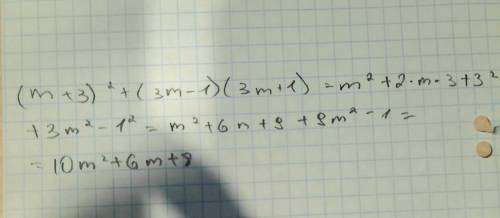 (m+3)² + (3m-1)(3m+1) = m² + 2·m·3 + 3²
+ 3m² - 1² = m² + 6m + 9 + 9m² - 1 =
= 10m² + 6m + 8